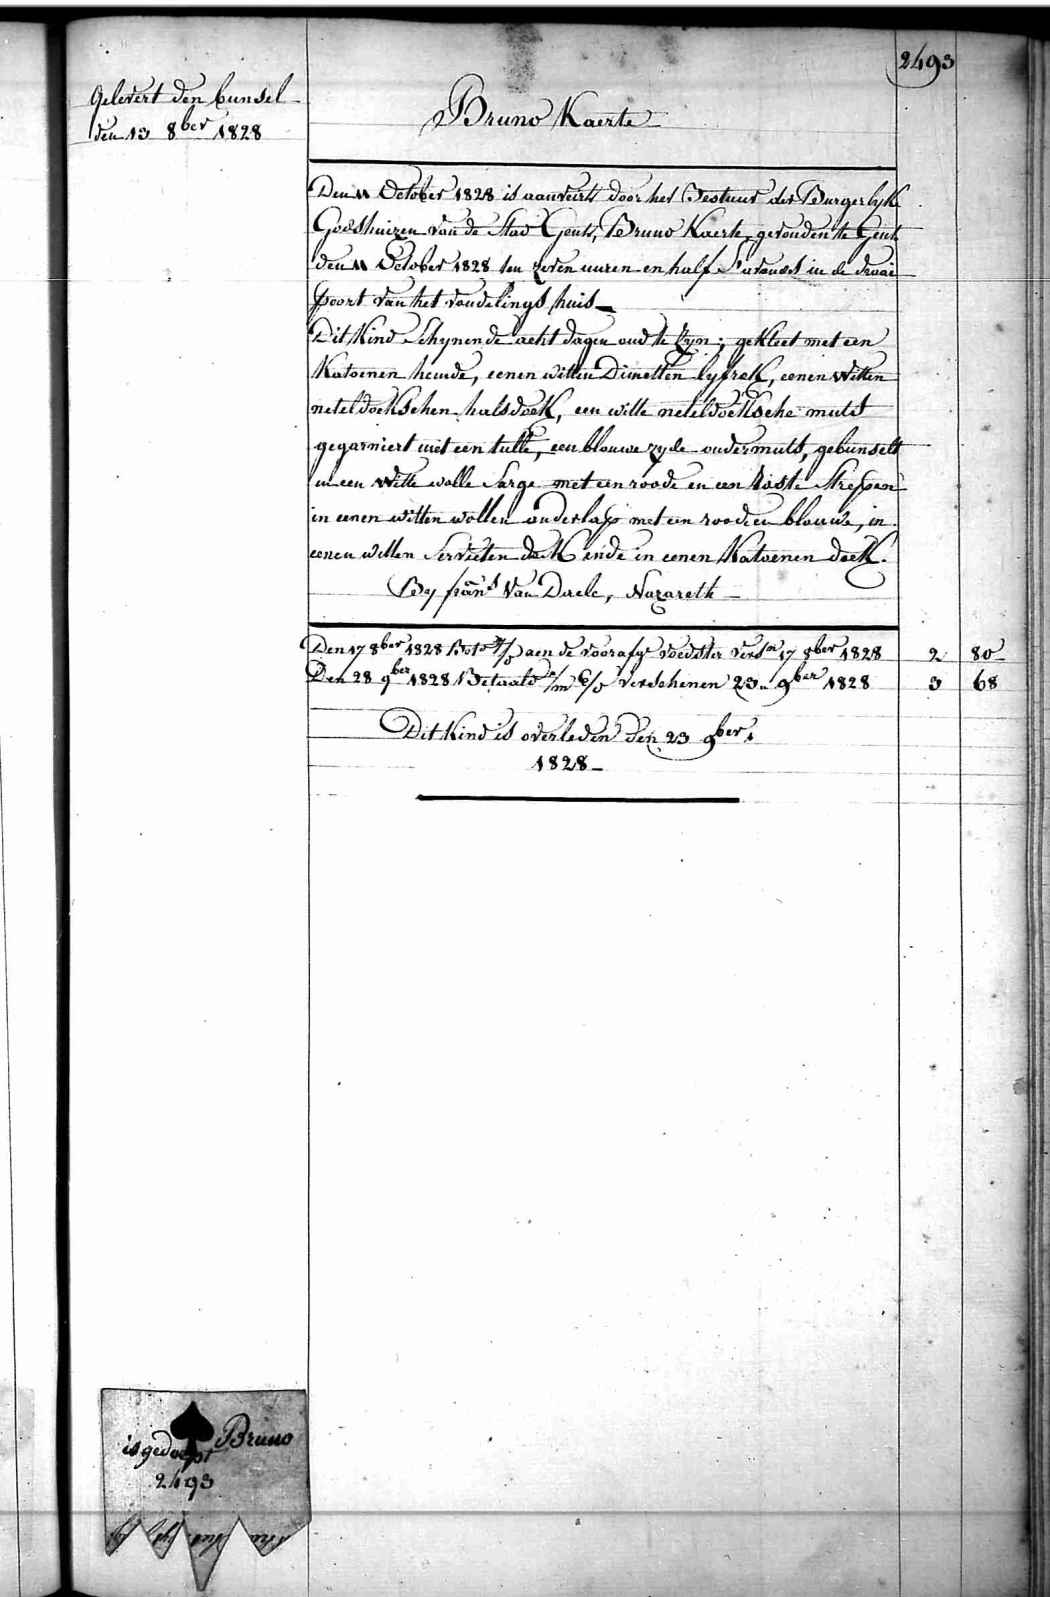 2493
Gelevert den bunsel
den 13 8ber 1828
Bruno Kaerte
Den 11 October 1828 is aanveirt door het Bestuur der Burgerlyke
Godshuizen van de Stad Gent, Bruno Kaerte, gevonden te Gent
den 11 October 1828 ten zeven uuren en half S'avonds in de draai
poort van het vondelings huis
Dit Kind Schynende acht dagen oud te Zyn; gekleet met een
Katoenen hemde, eenen witten Dimetten lyfrok, eenen Witten
neteldoekschen halsdoek, een witte neteldoeksche muts
gegarniert met een tulle, een blauwe zyde ondermuts, gebunselt
in een Witte wolle Sarge met een roode en een Strepen
in eenen witten wollen onderlap met een roode en blauwe, in
eenen witten Servieten doek ende in eenen Katoenen doek.
By frans Van Daele, Nazareth
Den 17 8ber 1828 aen de voorafge voedster 17 8ber 1828 2 80
Den 28 9ber 1828 Betaald verschenen 23n 9ber 1828 3 68
Dit Kind is overleden den 23 9ber
1828
is gedoopt Bruno
2493